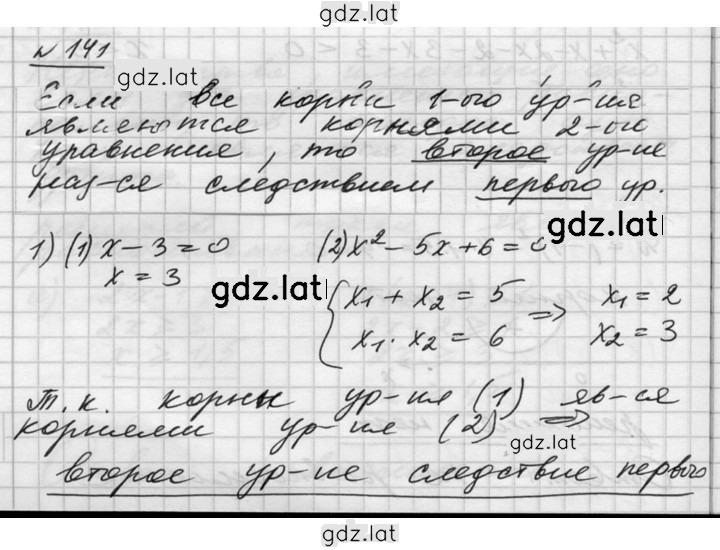 gdz.lat
x² + x - 2x - 2 - 3x - 3 < 0
№ 141
gdz.lat
Если все корни 1-ого ур-ия
являются корнями 2-ого
уравнения, то второе ур-ие
наз-ся следствием первого ур.
1) (1) x - 3 = 0 (2) x² - 5x + 6 = 0
gdz.lat
x = 3
gdz.lat
{ x₁ + x₂ = 5 ⇒ x₁ = 2
x₁ · x₂ = 6 x₂ = 3
Т.к. корны ур-ия (1) яв-ся
корнями ур-ия (2) ⇒
gdz.lat
второе ур-ие следствие первого
gdz.lat